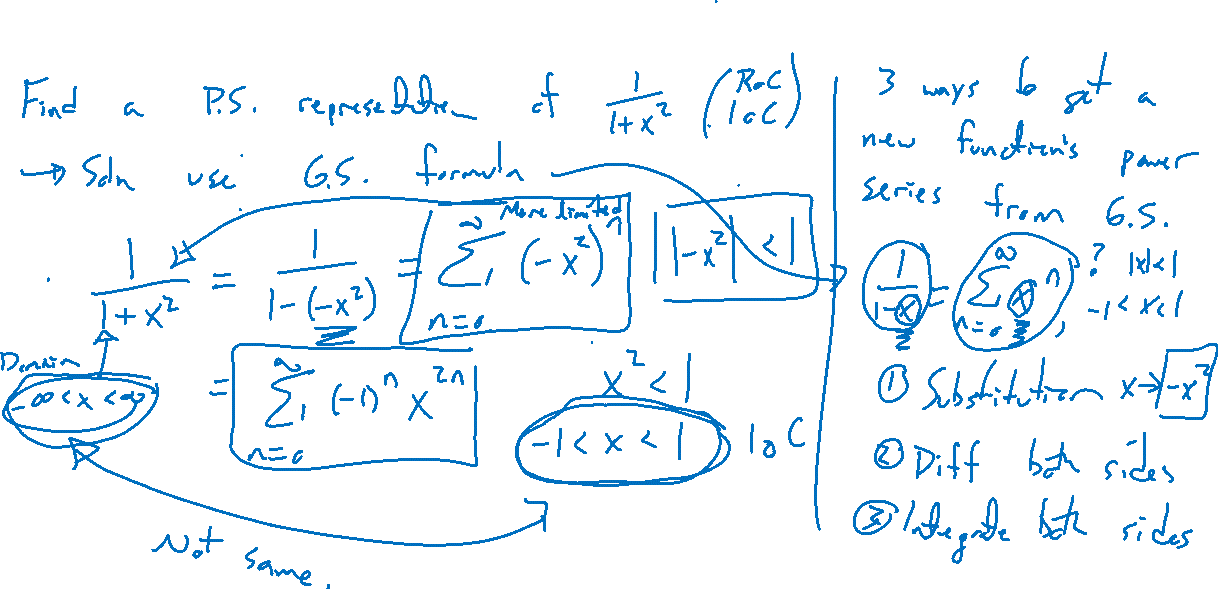 Find a P.S. representation of 1/(1+x²) (RoC IoC)
→ Soln use G.S. formula
More limited
1/(1+x²) = 1/(1-(-x²)) = ∑_{n=0}^{∞} (-x²)^n |-x²| < 1
Domain
-∞<x<∞
= ∑_{n=0}^{∞} (-1)^n x^{2n}
x² < 1
-1 < x < 1 IoC
Not same.
3 ways to get a
new function's power
series from G.S.
1/(1-x) = ∑_{n=0}^{∞} x^n, ? |x|<1
-1 < x < 1
① Substitution x→ -x²
② Diff both sides
③ Integrate both sides